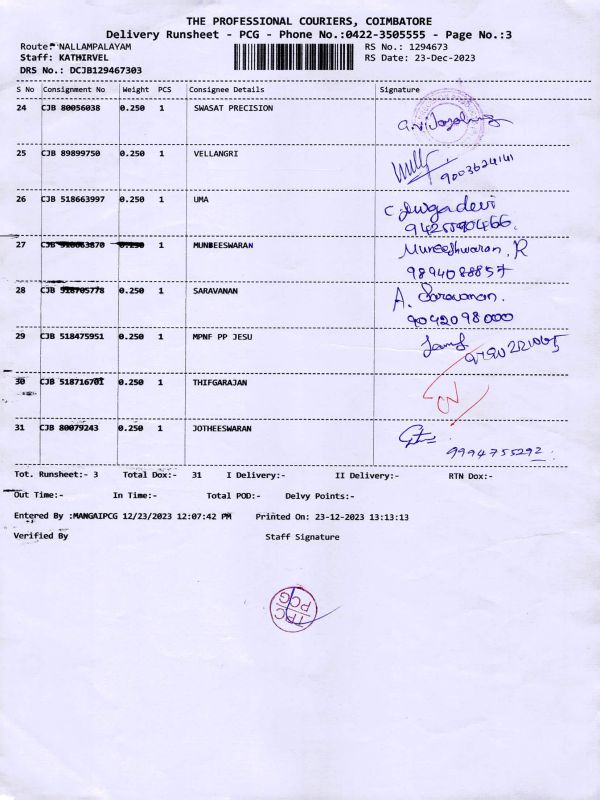 THE PROFESSIONAL COURIERS, COIMBATORE
Delivery Runsheet - PCG - Phone No.:0422-3505555 - Page No.:3
Route: NALLAMPALAYAM RS No.: 1294673
Staff: KATHIRVEL RS Date: 23-Dec-2023
DRS No.: DCJB129467303
S No Consignment No Weight PCS Consignee Details Signature
24 CJB 80056038 0.250 1 SWASAT PRECISION
25 CJB 89899750 0.250 1 VELLANGRI 9003624141
26 CJB 518663997 0.250 1 UMA C. Durgadevi
9425590466.
27 CJB 0.250 1 MUNEESWARAN Muneeshwaran, R
9894088857
28 CJB 518705778 0.250 1 SARAVANAN A. Saravanan.
9042098000
29 CJB 518475951 0.250 1 MPNF PP JESU
30 CJB 518716701 0.250 1 THIFGARAJAN
31 CJB 80079243 0.250 1 JOTHEESWARAN
9994755292
Tot. Runsheet:- 3 Total Dox:- 31 I Delivery:- II Delivery:- RTN Dox:-
Out Time:- In Time:- Total POD:- Delvy Points:-
Entered By :MANGAIPCG 12/23/2023 12:07:42 PM Printed On: 23-12-2023 13:13:13
Verified By Staff Signature
TPC
PCG